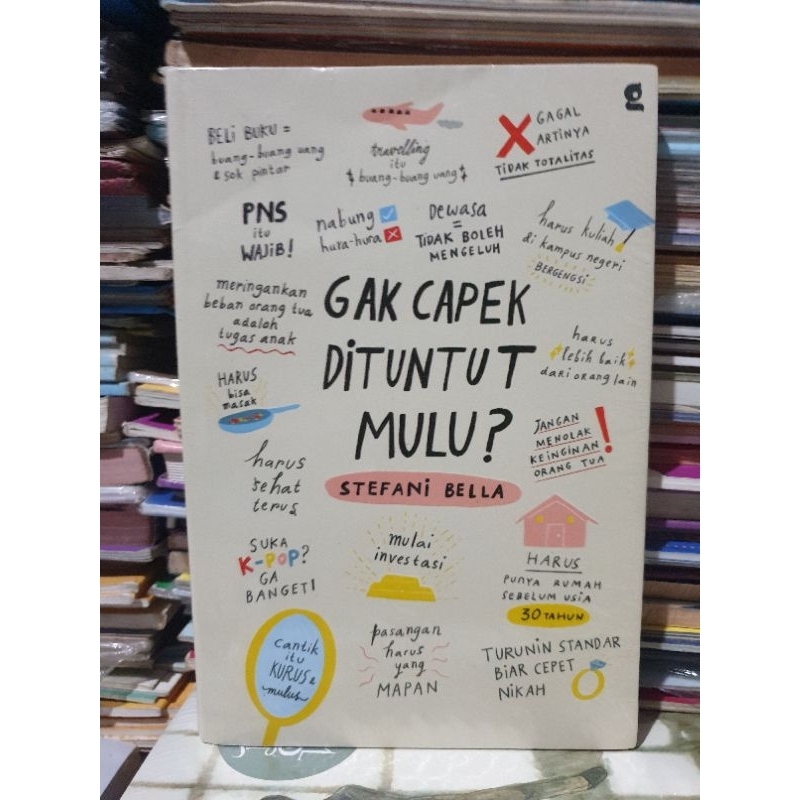 BELI BUKU =
buang-buang uang
& sok pintar
travelling
itu
$ buang-buang uang $
GAGAL
ARTINYA
TIDAK TOTALITAS
PNS
itu
WAJIB!
nabung
hura-hura
Dewasa
=
TIDAK BOLEH
MENGELUH
harus kuliah
di kampus negeri
BERGENGSI
!
meringankan
beban orang tua
adalah
tugas anak
GAK CAPEK
DITUNTUT
MULU?
STEFANI BELLA
harus
lebih baik
dari orang lain
HARUS
bisa
masak
JANGAN
MENOLAK
KEINGINAN
ORANG TUA
!
harus
sehat
terus
SUKA
K-POP?
GA
BANGET!
mulai
investasi
HARUS
PUNYA RUMAH
SEBELUM USIA
30 TAHUN
cantik
itu
KURUS &
mulus
pasangan
harus
yang
MAPAN
TURUNIN STANDAR
BIAR CEPET
NIKAH